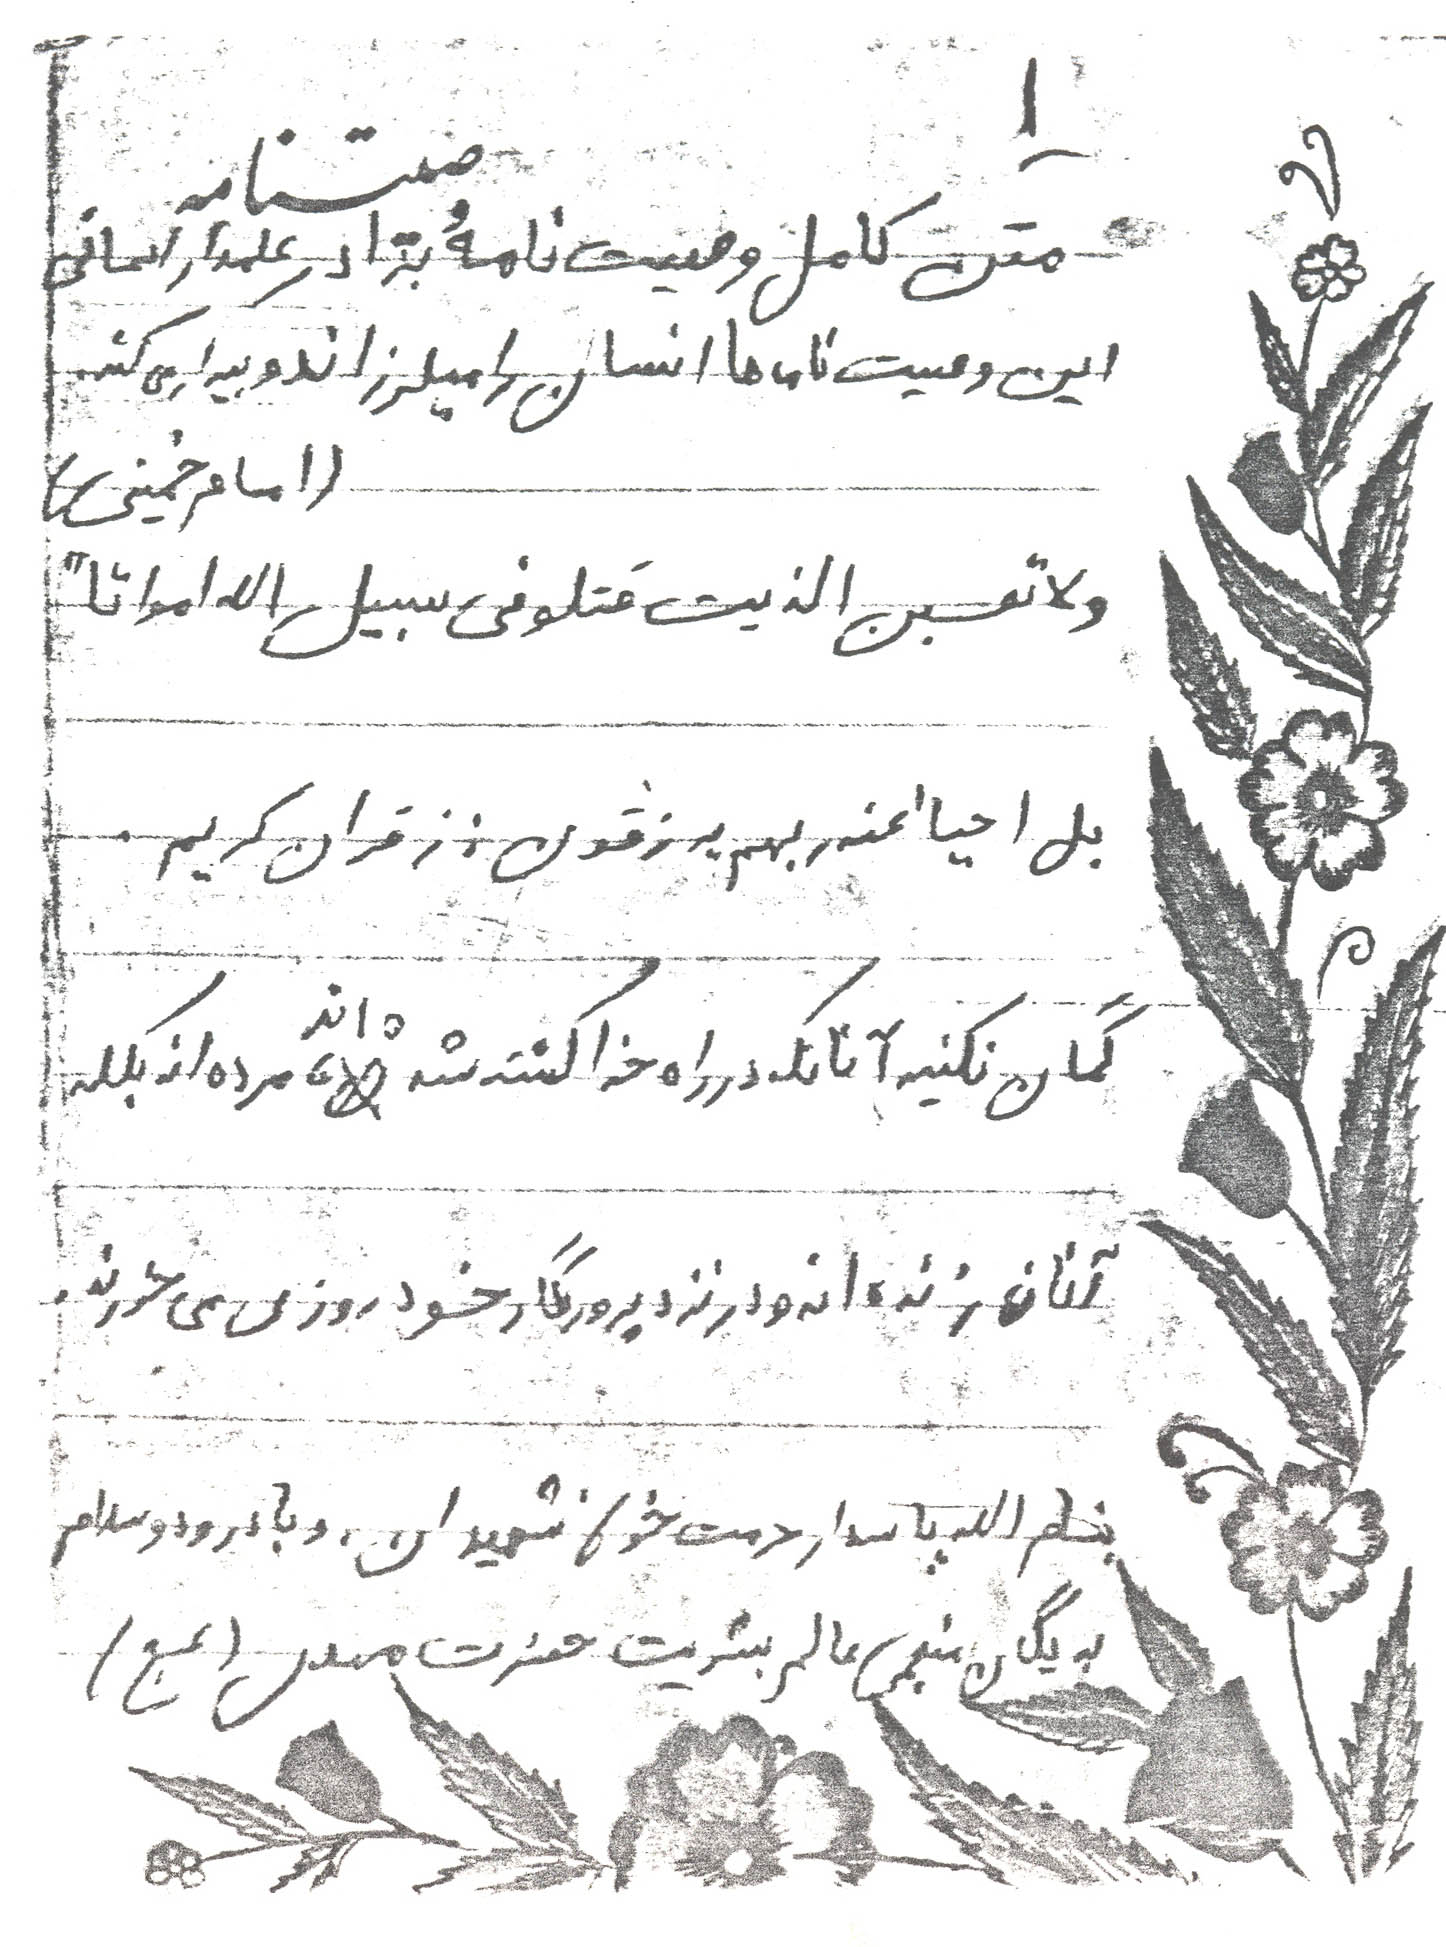 ۱
وصیتنامه
متن کامل وصیت نامهٔ برادر علمدار
این وصیت نامه ها انسان را میلرزاند و بیدار می کند.
(امام خمینی)
ولا تحسبن الذین قتلو فی سبیل الله امواتا"
بل احیاا عند ربهم یرزقون از قران کریم .
گمان نکنید آنانکه در راه خدا کشته شده اند مرده اند بلکه
آنان زنده اند و در نزد پرورگار خود روزی می خورند.
بنام الله پاسدار حرمت خون شهیدان، و با درود و سلام
به یگان منجی عالم بشریت حضرت مهدی (عج)